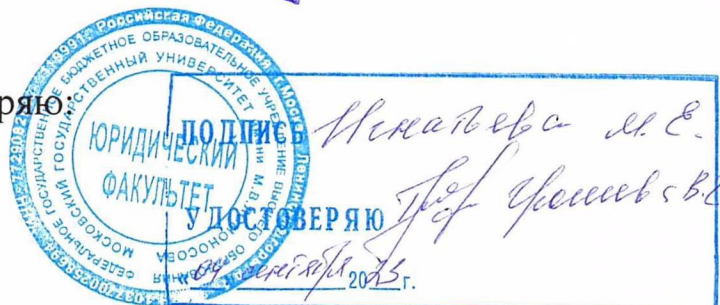 ряю:
119991, Российская Федерация, г. Москва, Ленинские горы
ФЕДЕРАЛЬНОЕ ГОСУДАРСТВЕННОЕ БЮДЖЕТНОЕ ОБРАЗОВАТЕЛЬНОЕ УЧРЕЖДЕНИЕ ВЫСШЕГО ОБРАЗОВАНИЯ
МОСКОВСКИЙ ГОСУДАРСТВЕННЫЙ УНИВЕРСИТЕТ ИМЕНИ М.В. ЛОМОНОСОВА
ЮРИДИЧЕСКИЙ
ФАКУЛЬТЕТ
ПОДПИСЬ Игнатьева М.Е.
УДОСТОВЕРЯЮ
«04» сентября 2023 г.